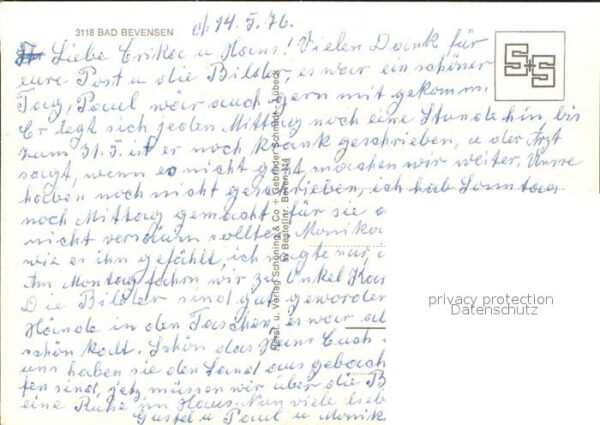 d. 14.5.76.
3118 BAD BEVENSEN
Liebe Erika u Hans! Vielen Dank für
eure Post u die Bilder, es war ein schöner
Tag, Paul wär auch gern mit gekomm.
Er legt sich jeden Mittag noch eine Stunde hin, bis
zum 31.5. ist er noch krank geschrieben, u der Arzt
sagt, wenn es nicht geht, machen wir weiter.
haben noch nicht geschrieben, ich hab Sonntag
noch Mittag gemacht für sie
nicht versäum sollten. Monika
wie es ihn gefählt, ich sagte nur,
Am Montag fahrn wir zu Onkel
Die Bilder sind gut geworden
Hände in den Taschen, es war
schön kalt. Schön das Hans Euch
uns haben sie den Sand aus
fen sind, jetz müssen wir über die B
eine Ruhe im Haus. Nun viele lieb
Gustel u Paul u Monik
S+S
Horst u. Verlag Schöning & Co + Gebrüder Schmidt · Lübeck
Bestellnr. Beven
privacy protection
Datenschutz